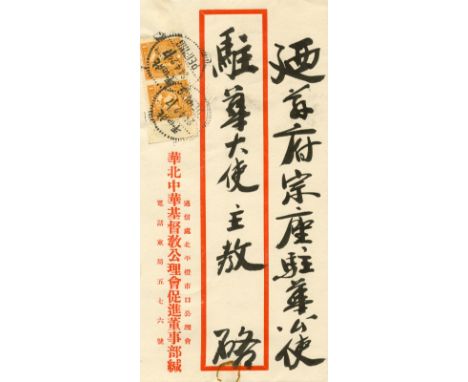 廼茲府宗座駐華公使
駐華大使主教 駱
通信處北平燈市口公理會
華北中華基督教公理會促進董事部緘
電話東局五七六號